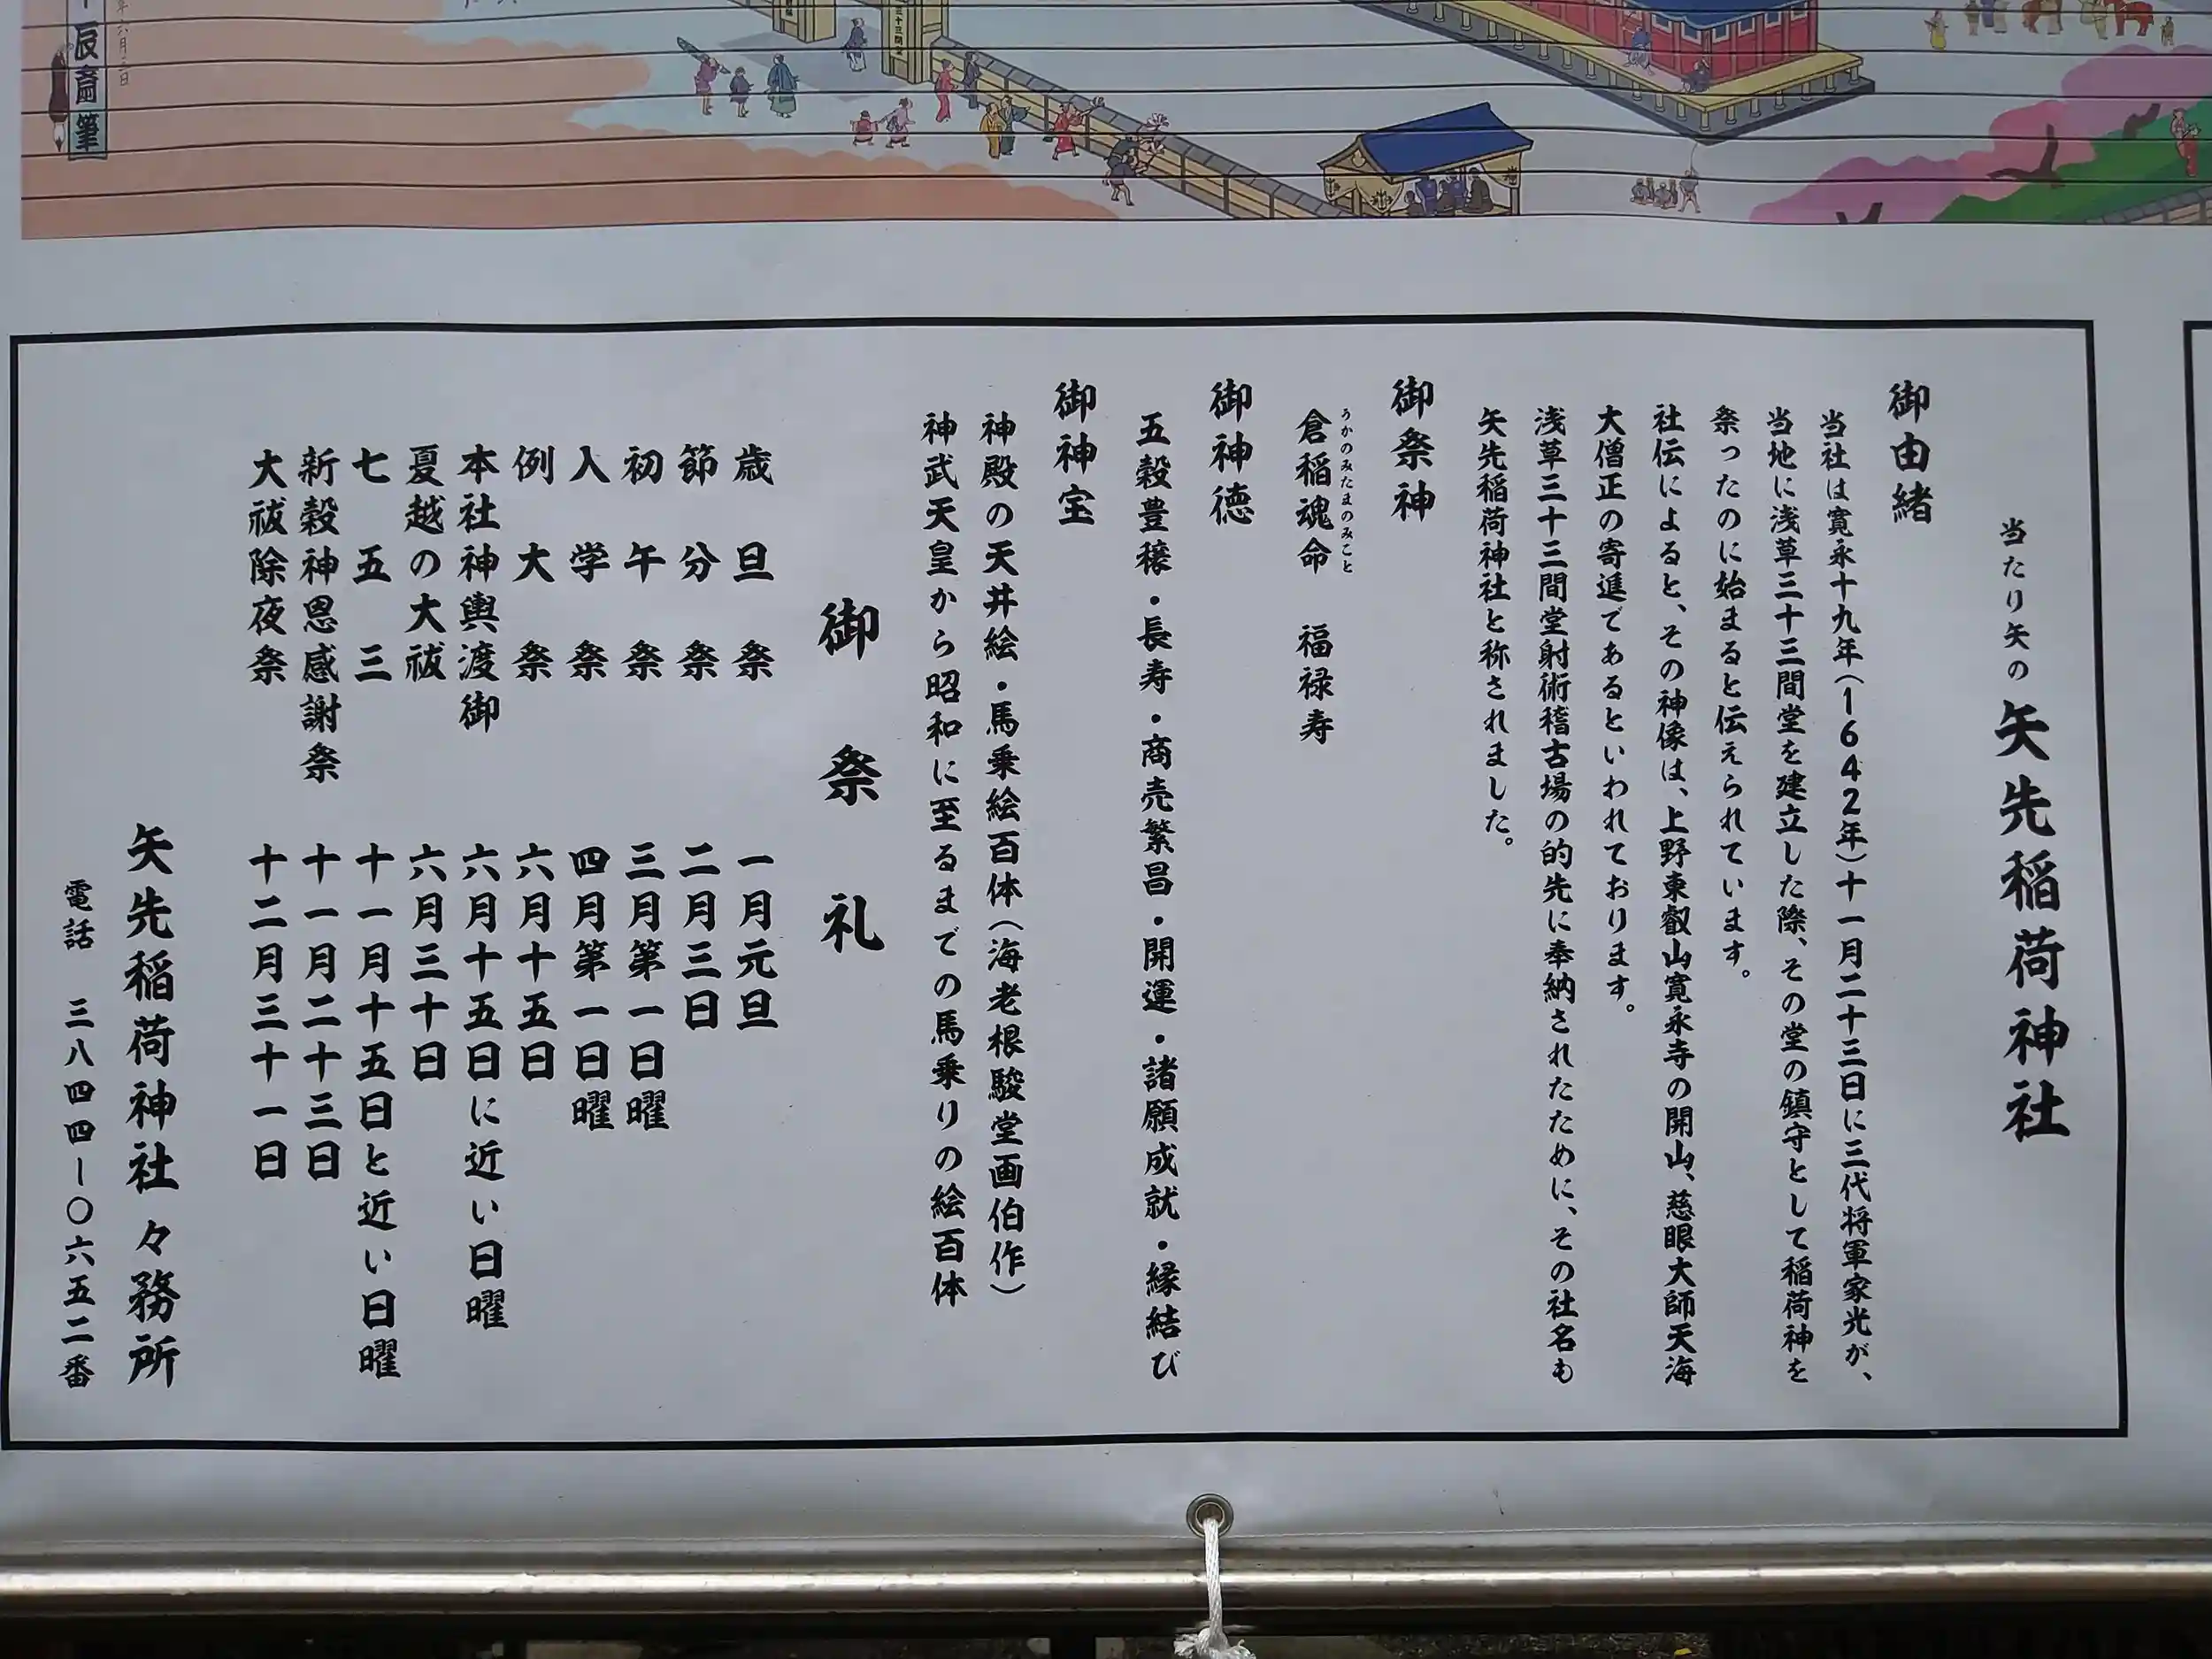 当たり矢の 矢先稲荷神社
御由緒
当社は寛永十九年(1642年)十一月二十三日に三代将軍家光が、
当地に浅草三十三間堂を建立した際、その堂の鎮守として稲荷神を
祭ったのに始まると伝えられています。
社伝によると、その神像は、上野東叡山寛永寺の開山、慈眼大師天海
大僧正の寄進であるといわれております。
浅草三十三間堂射術稽古場の的先に奉納されたために、その社名も
矢先稲荷神社と称されました。
御祭神
うかのみたまのみこと
倉稲魂命 福禄寿
御神徳
五穀豊穣・長寿・商売繁昌・開運・諸願成就・縁結び
御神宝
神殿の天井絵・馬乗絵百体(海老根駿堂画伯作)
神武天皇から昭和に至るまでの馬乗りの絵百体
御祭礼
歳旦祭 一月元旦
節分祭 二月三日
初午祭 三月第一日曜
入学祭 四月第一日曜
例大祭 六月十五日
本社神輿渡御 六月十五日に近い日曜
夏越の大祓 六月三十日
七五三 十一月十五日と近い日曜
新穀神恩感謝祭 十一月二十三日
大祓除夜祭 十二月三十一日
矢先稲荷神社々務所
電話 三八四四ー〇六五二番
三十三間堂
年六月二日
辰斎筆